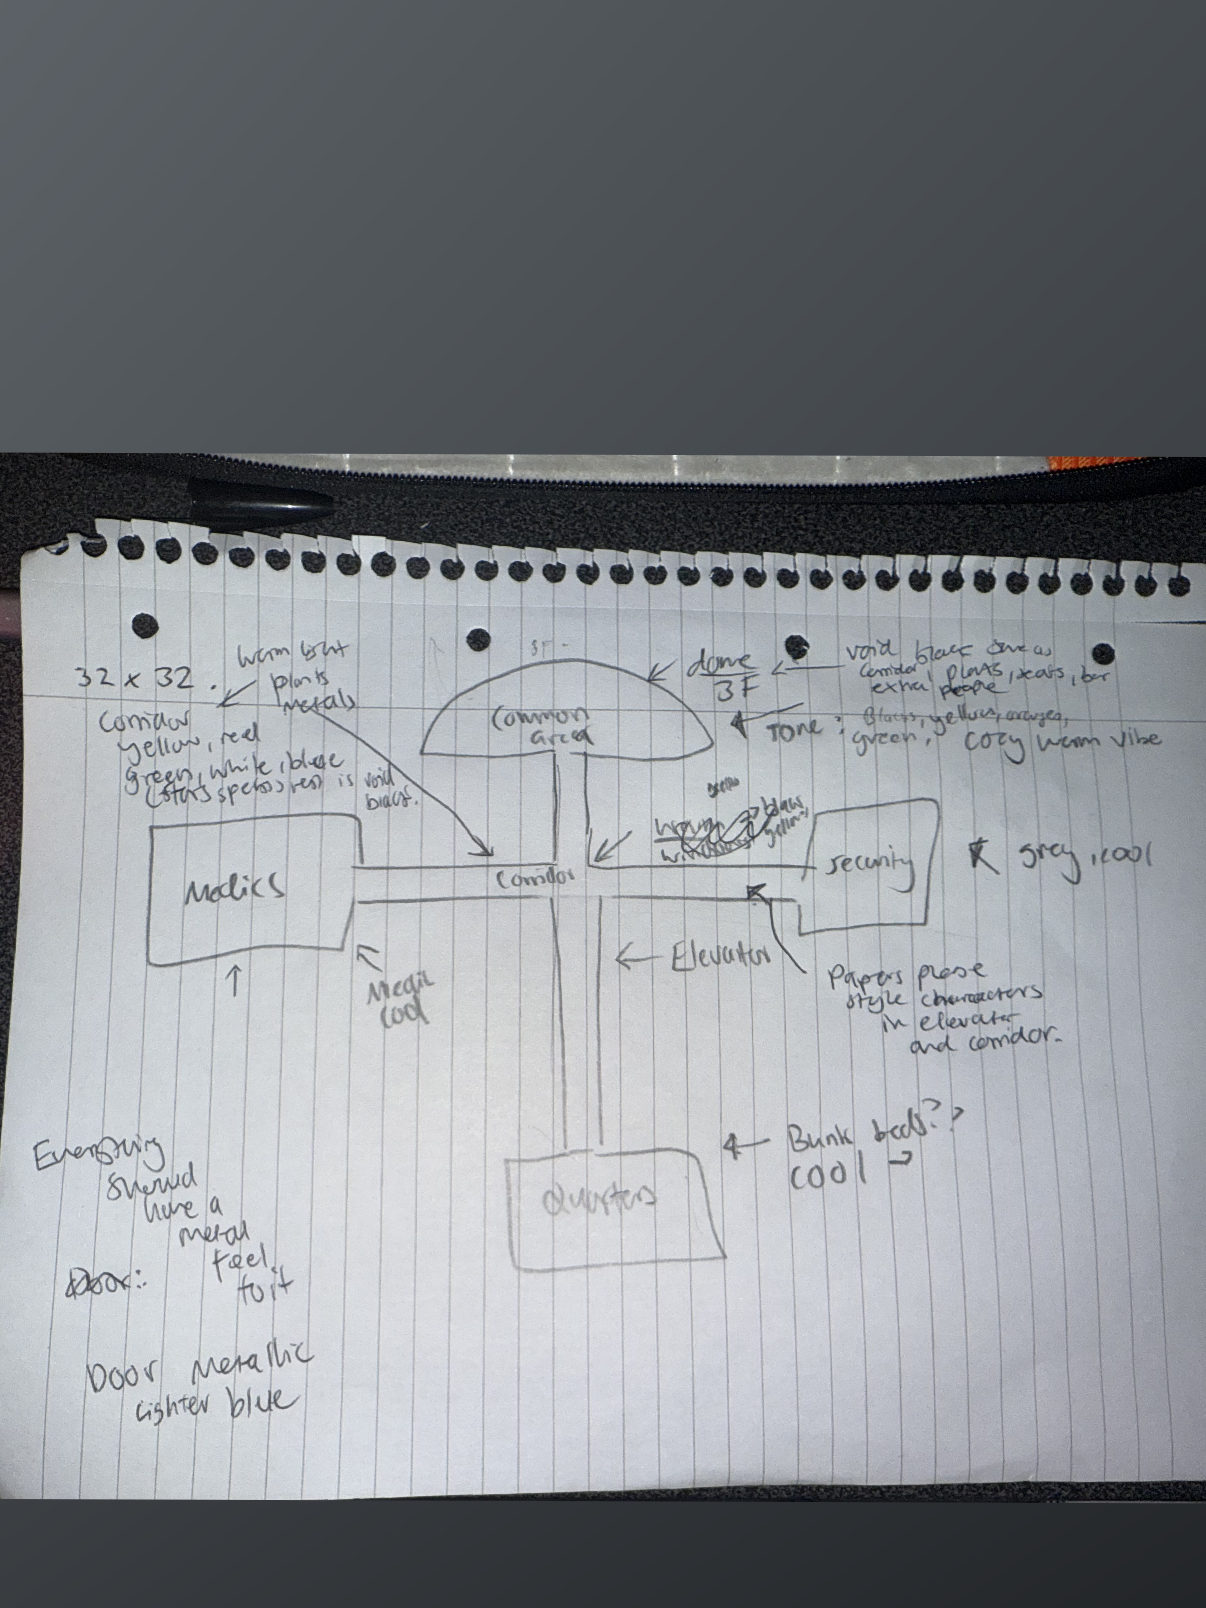 32 x 32.
warm light
plants
metals
Corridor
yellow, red
green, white, blue
(stars specs) rest is void
black.
3F -
dome
3F
void black same as
corridor, plants, seats, bar
extra people
Tone: blacks, yellows, oranges,
green, cozy warm vibe
Common
area
yellow,
Medics
Corridor
security
grey, cool
Elevator
cool
Papers please
style characters
in elevator
and corridor.
Bunk beds??
cool
Quarters
Everything
should
have a
metal
feel
to it
Door:
Door metallic
lighter blue